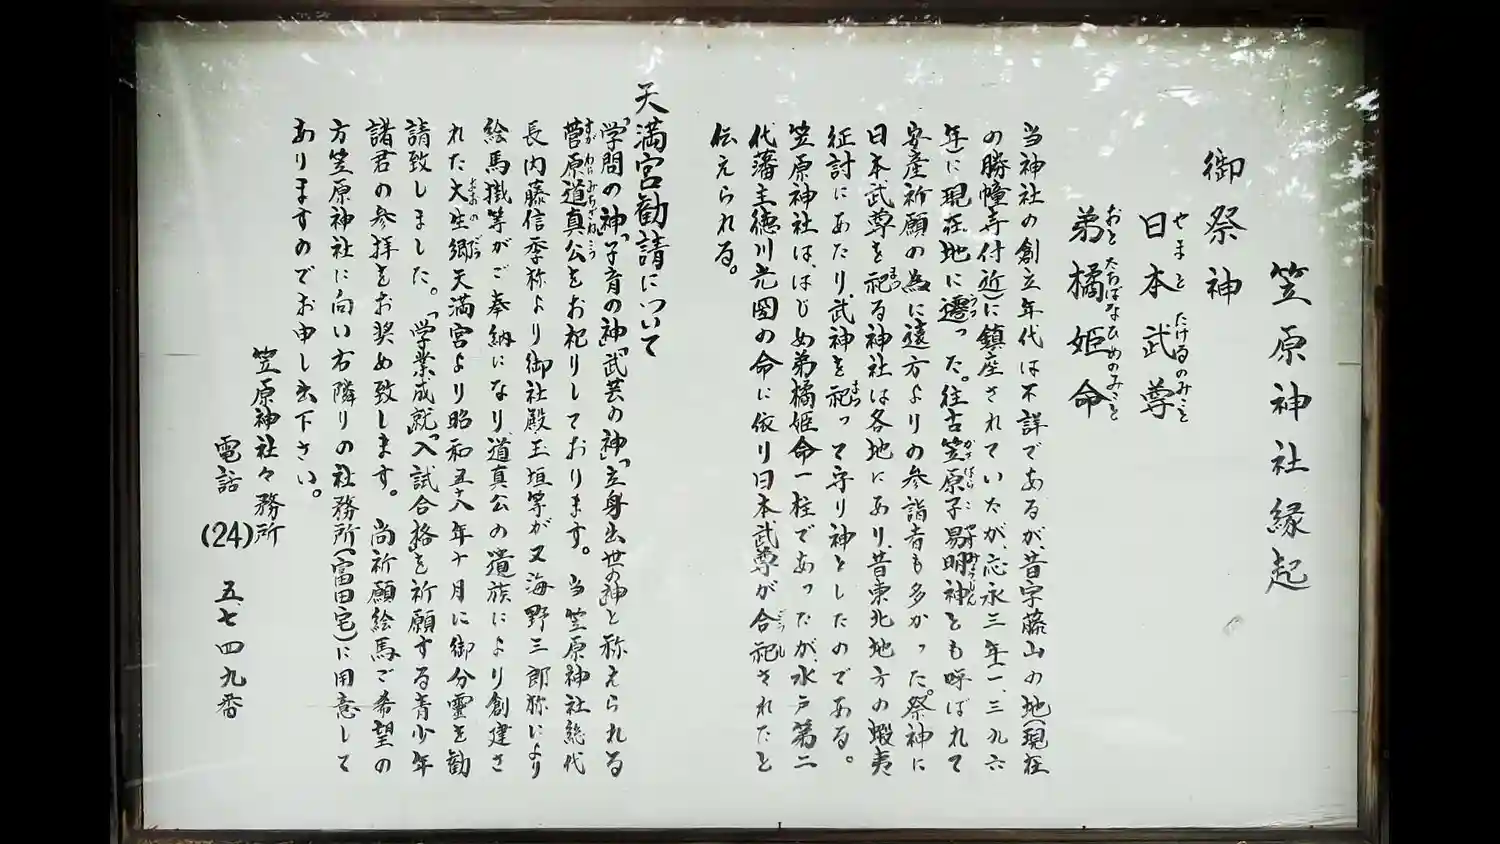 笠原神社縁起
御祭神
日本武尊
やまと たけるのみこと
弟橘姫命
おとたちばなひめのみこと
当神社の創立年代は不詳であるが、昔字藤山の地(現在
の勝幢寺付近)に鎮座されていたが、応永三年(一、三九六
年)に現在地に遷った。往古笠原子易明神とも呼ばれて
安産祈願の為に遠方よりの参詣者も多かった。祭神に
日本武尊を祀る神社は各地にあり、昔東北地方の蝦夷
征討にあたり、武神を祀って守り神としたのである。
笠原神社は、はじめ弟橘姫命一柱であったが、水戸第二
代藩主徳川光圀の命に依り日本武尊が合祀されたと
伝えられる。
天満宮勧請について
「学問の神」「子育の神」「武芸の神」「立身出世の神」と称えられる
菅原道真公をお祀りしております。当笠原神社総代
長内藤信季称より御社殿玉垣等が又海野三郎称により
絵馬掛等がご奉納になり、道真公の遺族により創建さ
れた大生郷天満宮より昭和五十八年十月に御分霊を勧
請致しました。「学業成就」「入試合格」を祈願する青少年
諸君の参拝をお奨め致します。尚祈願絵馬ご希望の
方笠原神社に向い右隣りの社務所(富田宅)に用意して
ありますのでお申し出下さい。
笠原神社々務所
電話(24)五七四九番